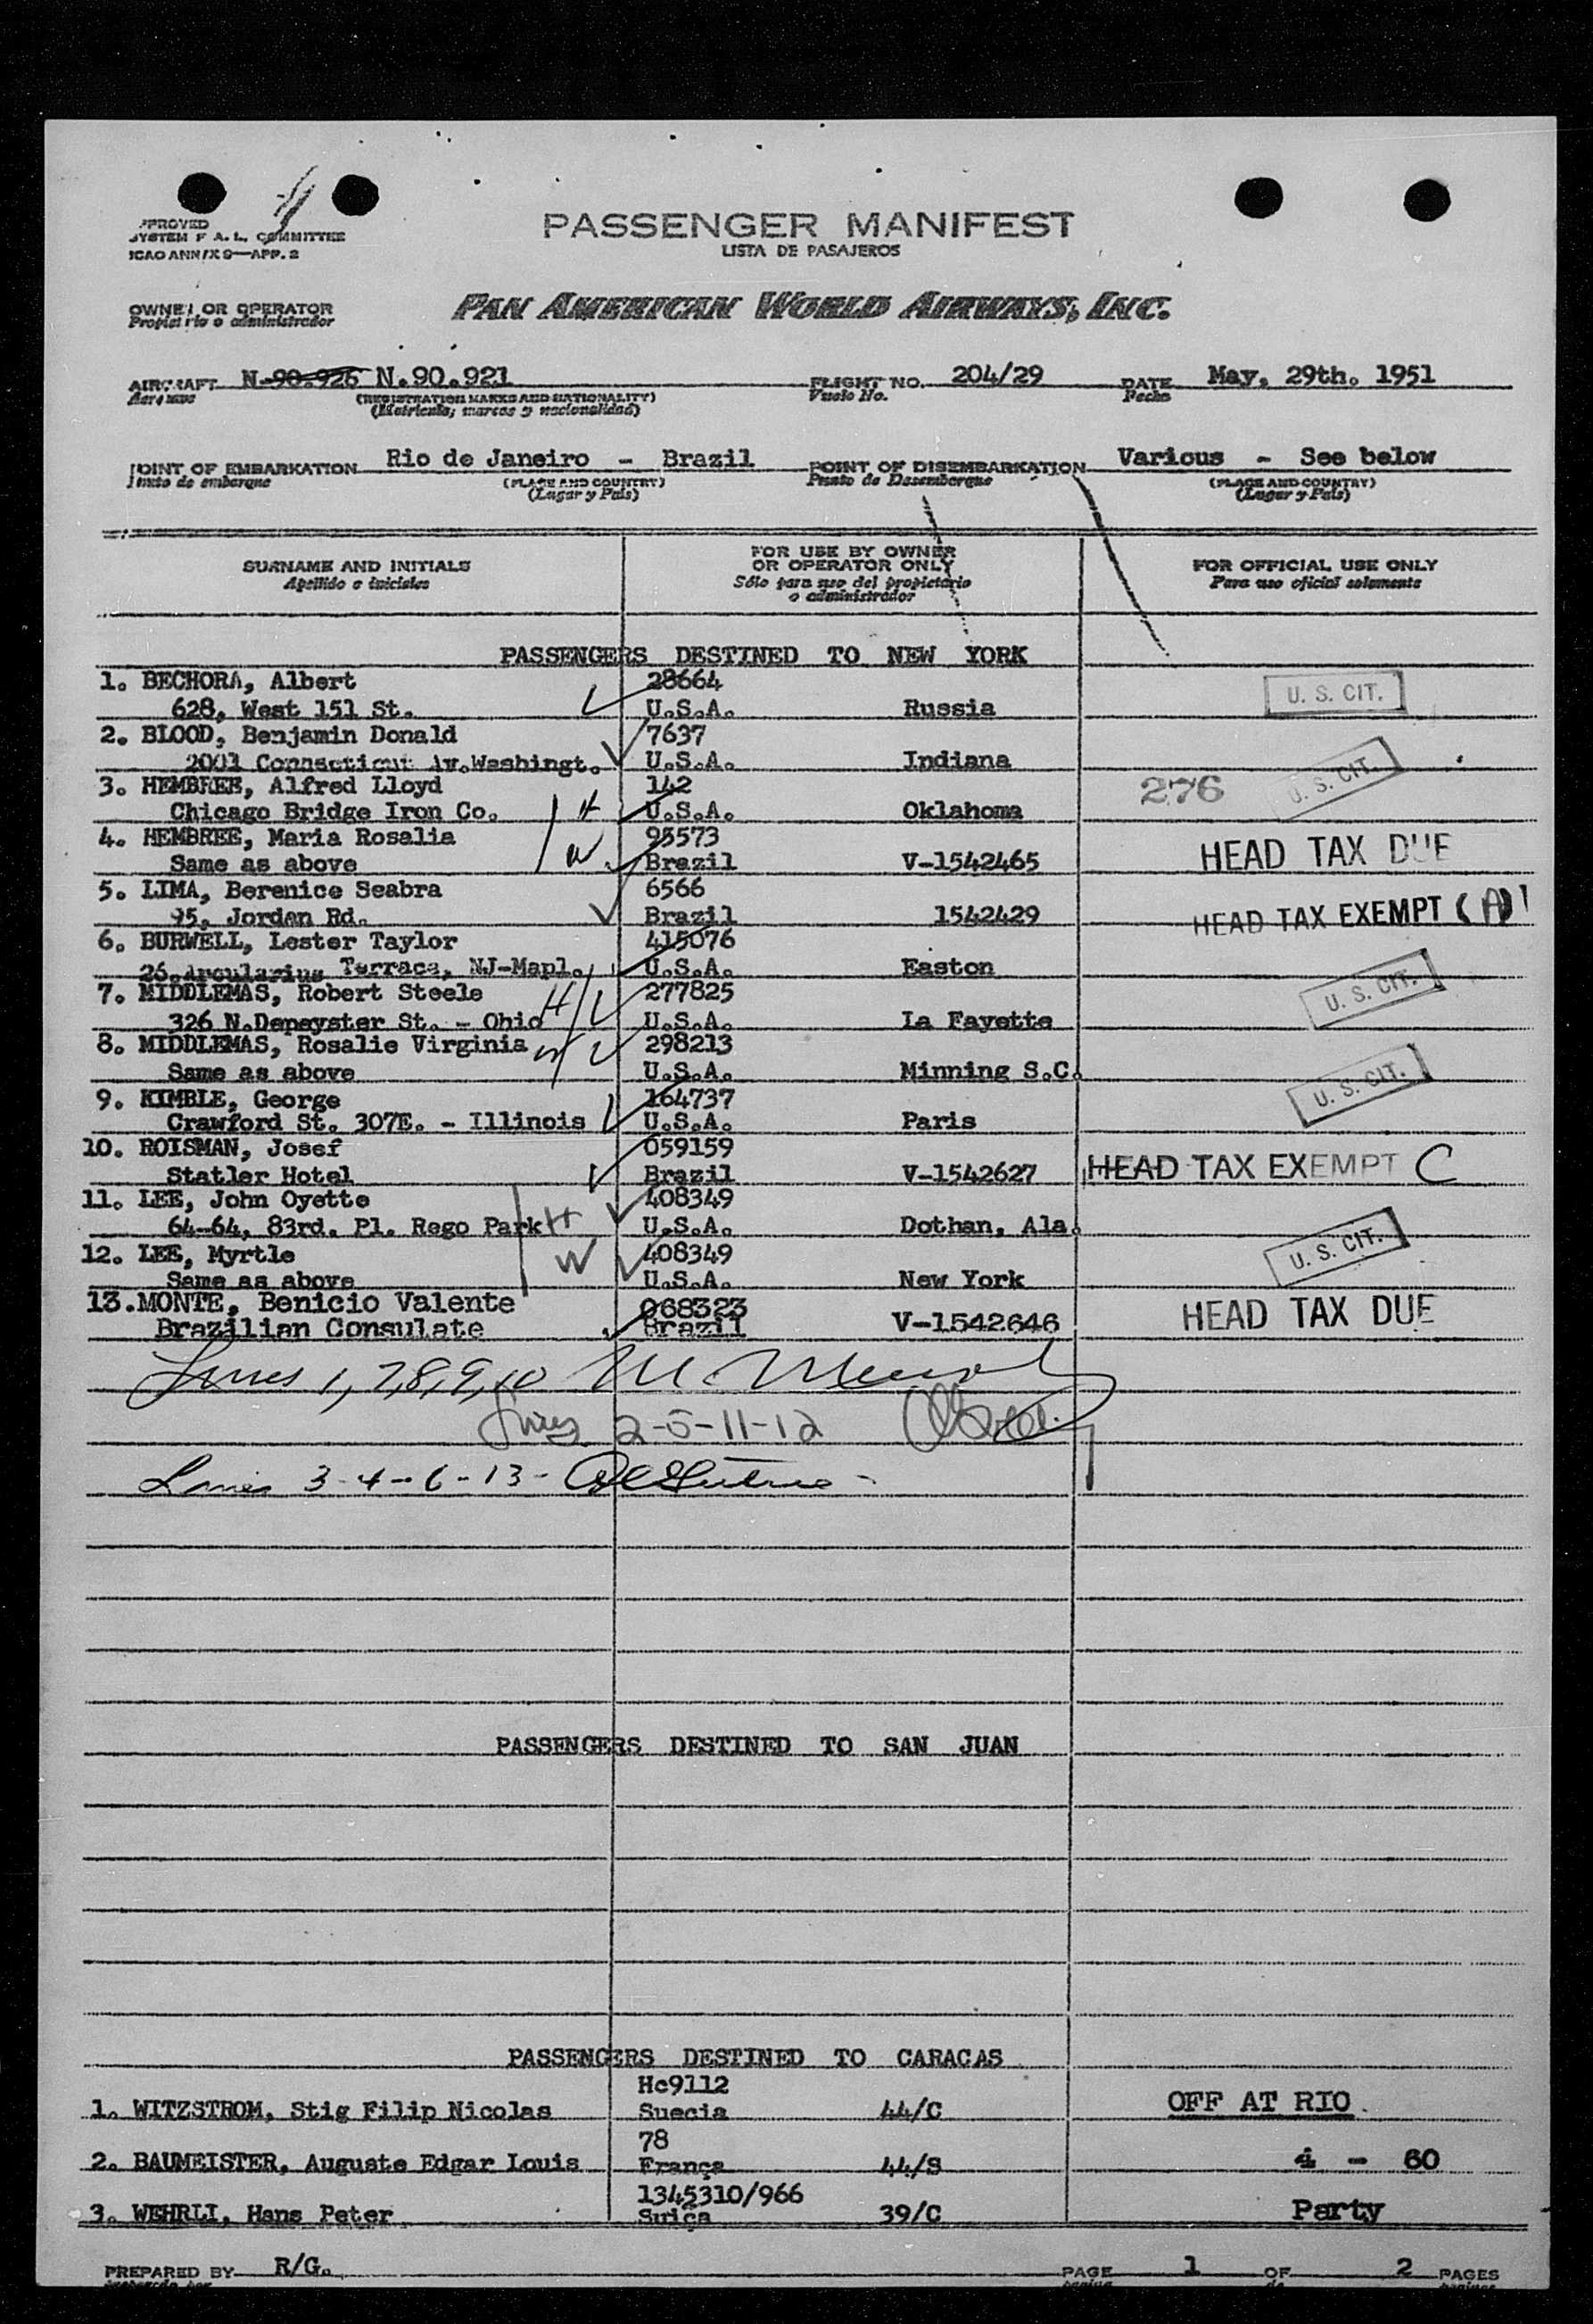 APPROVED
SYSTEM F. A. L. COMMITTEE
ICAO ANNEX 9—APP. 2
PASSENGER MANIFEST
LISTA DE PASAJEROS
OWNER OR OPERATOR
Propietario o administrador
PAN AMERICAN WORLD AIRWAYS, INC.
AIRCRAFT N-90.926 N.90.921 FLIGHT NO. 204/29 DATE May, 29th. 1951
(REGISTRATION MARKS AND NATIONALITY) Vuelo No. Fecha
(Matricula, marcas y nacionalidad)
POINT OF EMBARKATION Rio de Janeiro - Brazil POINT OF DISEMBARKATION Various - See below
Punto de embarque (PLACE AND COUNTRY) Punto de Desembarque (PLACE AND COUNTRY)
(Lugar y País) (Lugar y País)
SURNAME AND INITIALS
Apellido e iniciales
FOR USE BY OWNER
OR OPERATOR ONLY
Sólo para uso del propietario
o administrador
FOR OFFICIAL USE ONLY
Para uso oficial solamente
PASSENGERS DESTINED TO NEW YORK
1. BECHORA, Albert 28664
628, West 151 St. U.S.A. Russia U. S. CIT.
2. BLOOD, Benjamin Donald 7637
2001 Connecticut Av.Washingt. U.S.A. Indiana
3. HEMBREE, Alfred Lloyd 142 276 U. S. CIT.
Chicago Bridge Iron Co. H U.S.A. Oklahoma
4. HEMBREE, Maria Rosalia W 95573
Same as above Brazil V-1542465 HEAD TAX DUE
5. LIMA, Berenice Seabra 6566
95, Jordan Rd. Brazil 1542429 HEAD TAX EXEMPT (A)
6. BURWELL, Lester Taylor 415076
26, Terrace, NJ-Mapl. U.S.A. Easton
7. MIDDLEMAS, Robert Steele H 277825 U. S. CIT.
326 N.Depeyster St. - Ohio U.S.A. La Fayette
8. MIDDLEMAS, Rosalie Virginia W 298213
Same as above U.S.A. Minning S.C.
9. KIMBLE, George 164737 U. S. CIT.
Crawford St. 307E. - Illinois U.S.A. Paris
10. ROISMAN, Josef 059159
Statler Hotel Brazil V-1542627 HEAD TAX EXEMPT C
11. LEE, John Oyette 408349
64-64, 83rd. Pl. Rego Park H U.S.A. Dothan, Ala.
12. LEE, Myrtle W 408349 U. S. CIT.
Same as above U.S.A. New York
13.MONTE, Benicio Valente 068323 HEAD TAX DUE
Brazilian Consulate Brazil V-1542646
Lines 1, 7,8,9,10
Lines 2-5-11-12
Lines 3-4-6-13-
PASSENGERS DESTINED TO SAN JUAN
PASSENGERS DESTINED TO CARACAS
Hc9112
1. WITZSTROM, Stig Filip Nicolas Suecia 44/C OFF AT RIO.
78
2. BAUMEISTER, Auguste Edgar Louis França 44/S 4 - 60
1345310/966
3. WEHRLI, Hans Peter Suiça 39/C Party
PREPARED BY R/G. PAGE 1 OF 2 PAGES